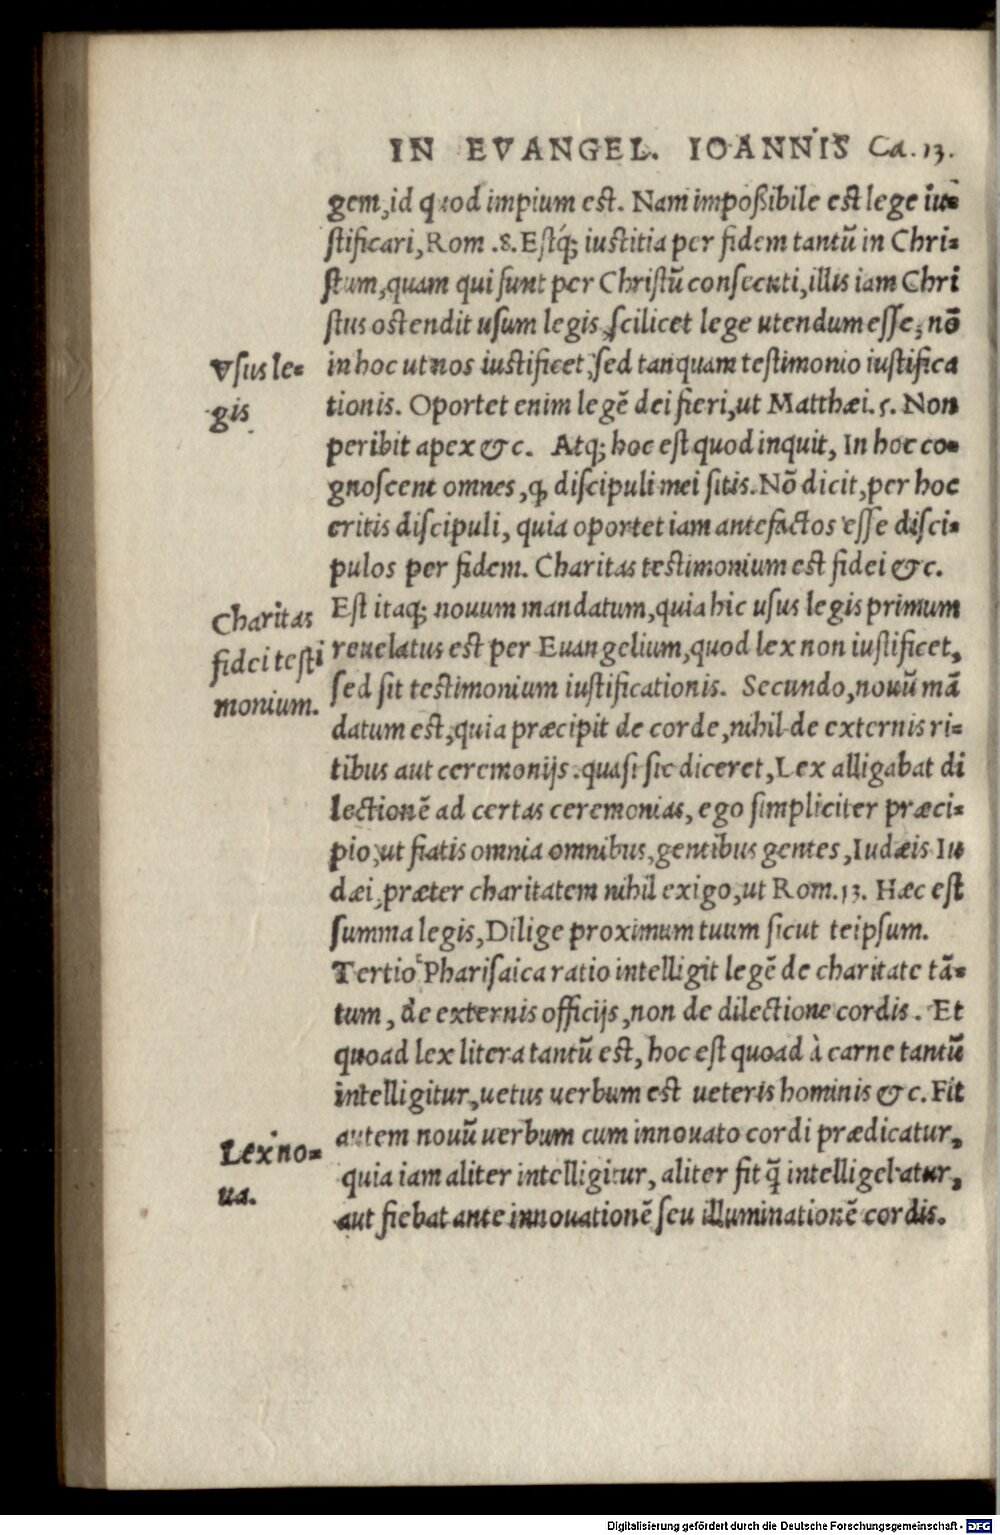 IN EVANGEL. IOANNIS Ca.13.
gem,id quod impium est. Nam impoßibile est lege iu-
ſtificari,Rom .8.Eſtq́; iuſtitia per fidem tantũ in Chri-
ſtum,quam qui ſunt per Chriſtũ conſecuti,illis iam Chri
ſtus oſtendit uſum legis,ſcilicet lege utendum eſſe, nõ
Vſus le-
in hoc ut nos iuſtificet,ſed tanquam teſtimonio iuſtifica
gis.
tionis. Oportet enim legẽ dei fieri,ut Matthæi.5. Non
peribit apex &c. Atq; hoc eſt quod inquit, In hoc co-
gnoſcent omnes,ꝙ diſcipuli mei ſitis.Nõ dicit,per hoc
eritis diſcipuli, quia oportet iam ante factos eſſe diſci-
pulos per fidem. Charitas teſtimonium eſt fidei &c.
Charitas
Eſt itaq; nouum mandatum,quia hic uſus legis primum
fidei teſti
reuelatus eſt per Euangelium,quod lex non iuſtificet,
monium.
ſed ſit teſtimonium iuſtificationis. Secundo,nouũ mã
datum eſt,quia præcipit de corde,nihil de externis ri-
tibus aut ceremonijs.quaſi ſic diceret,Lex alligabat di
lectionẽ ad certas ceremonias, ego ſimpliciter præci-
pio,ut fiatis omnia omnibus,gentibus gentes,Iudæis Iu
dæi,præter charitatem nihil exigo,ut Rom.13. Hæc eſt
ſumma legis,Dilige proximum tuum ſicut teipſum.
Tertio Phariſaica ratio intelligit legẽ de charitate tã-
tum, de externis officijs,non de dilectione cordis. Et
quoad lex litera tantũ eſt, hoc eſt quoad à carne tantũ
intelligitur,uetus uerbum eſt ueteris hominis &c. Fit
autem nouũ uerbum cum innouato cordi prædicatur,
Lex no-
quia iam aliter intelligitur, aliter fit q̃ intelligebatur,
ua.
aut fiebat ante innouationẽ ſeu illuminationẽ cordis.
Digitalisierung gefördert durch die Deutsche Forschungsgemeinschaft - DFG